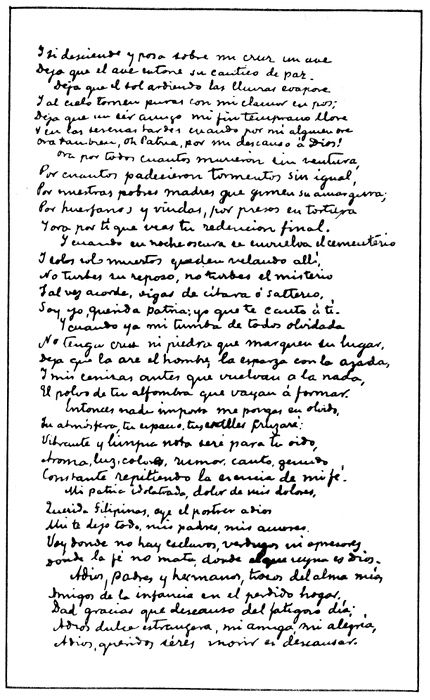 Y si desciende y posa sobre mi cruz un ave
Deja que el ave entone su cantico de paz.
Deja que el sol ardiendo las lluvias evapore
Y al cielo tornen puras con mi clamor en pos;
Deja que un sér amigo mi fin temprano llore
Y en las serenas tardes cuando por mi alguien ore
Ora tambien, Oh Patria, por mi descanso á Dios!
Ora por todos cuantos murieron sin ventura,
Por cuantos padecieron tormentos sin igual,
Por nuestras pobres madres que gimen su amargura;
Por huerfanos y viudas, por presos en tortura
Y ora por ti que veas tu redencion final.
Y cuando en noche oscura se envuelva el cementerio
Y solos solo muertos queden velando alli,
No turbes su reposo, no turbes el misterio
Tal vez acorde, oigas de citara ó salterio,
Soy yo, querida Patria; yo que te canto á ti.
Y cuando ya mi tumba de todos olvidada
No tenga cruz ni piedra que marquen su lugar,
Deja que la are el hombre, la esparza con la azada,
Y mis cenizas antes que vuelvan a la nada,
El polvo de tu alfombra que vayan á formar.
Entonces nada importa me pongas en olvido,
Tu atmósfera, tu espacio, tus valles cruzaré;
Vibrante y limpia nota seré para tu oido,
Aroma, luz, colores, rumor, canto, gemido,
Constante repitiendo la esencia de mi fé.
Mi Patria idolatrada, dolor de mis dolores,
Querida Filipinas, oye el postrer adios
Ahi te dejo todo, mis padres, mis amores.
Voy donde no hay esclavos, verdugos ni opresores
Donde la fé no mata, donde el que reyna es Dios.
Adios, padres y hermanos, trozos del alma mia,
Amigos de la infancia en el perdido hogar.
Dad gracias que descanso del fatigoso dia;
Adios dulce estrangera, mi amiga, mi alegria,
Adios, queridos séres morir es descansar.